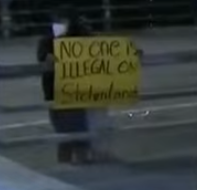 No one is
ILLEGAL ON
Stolenland